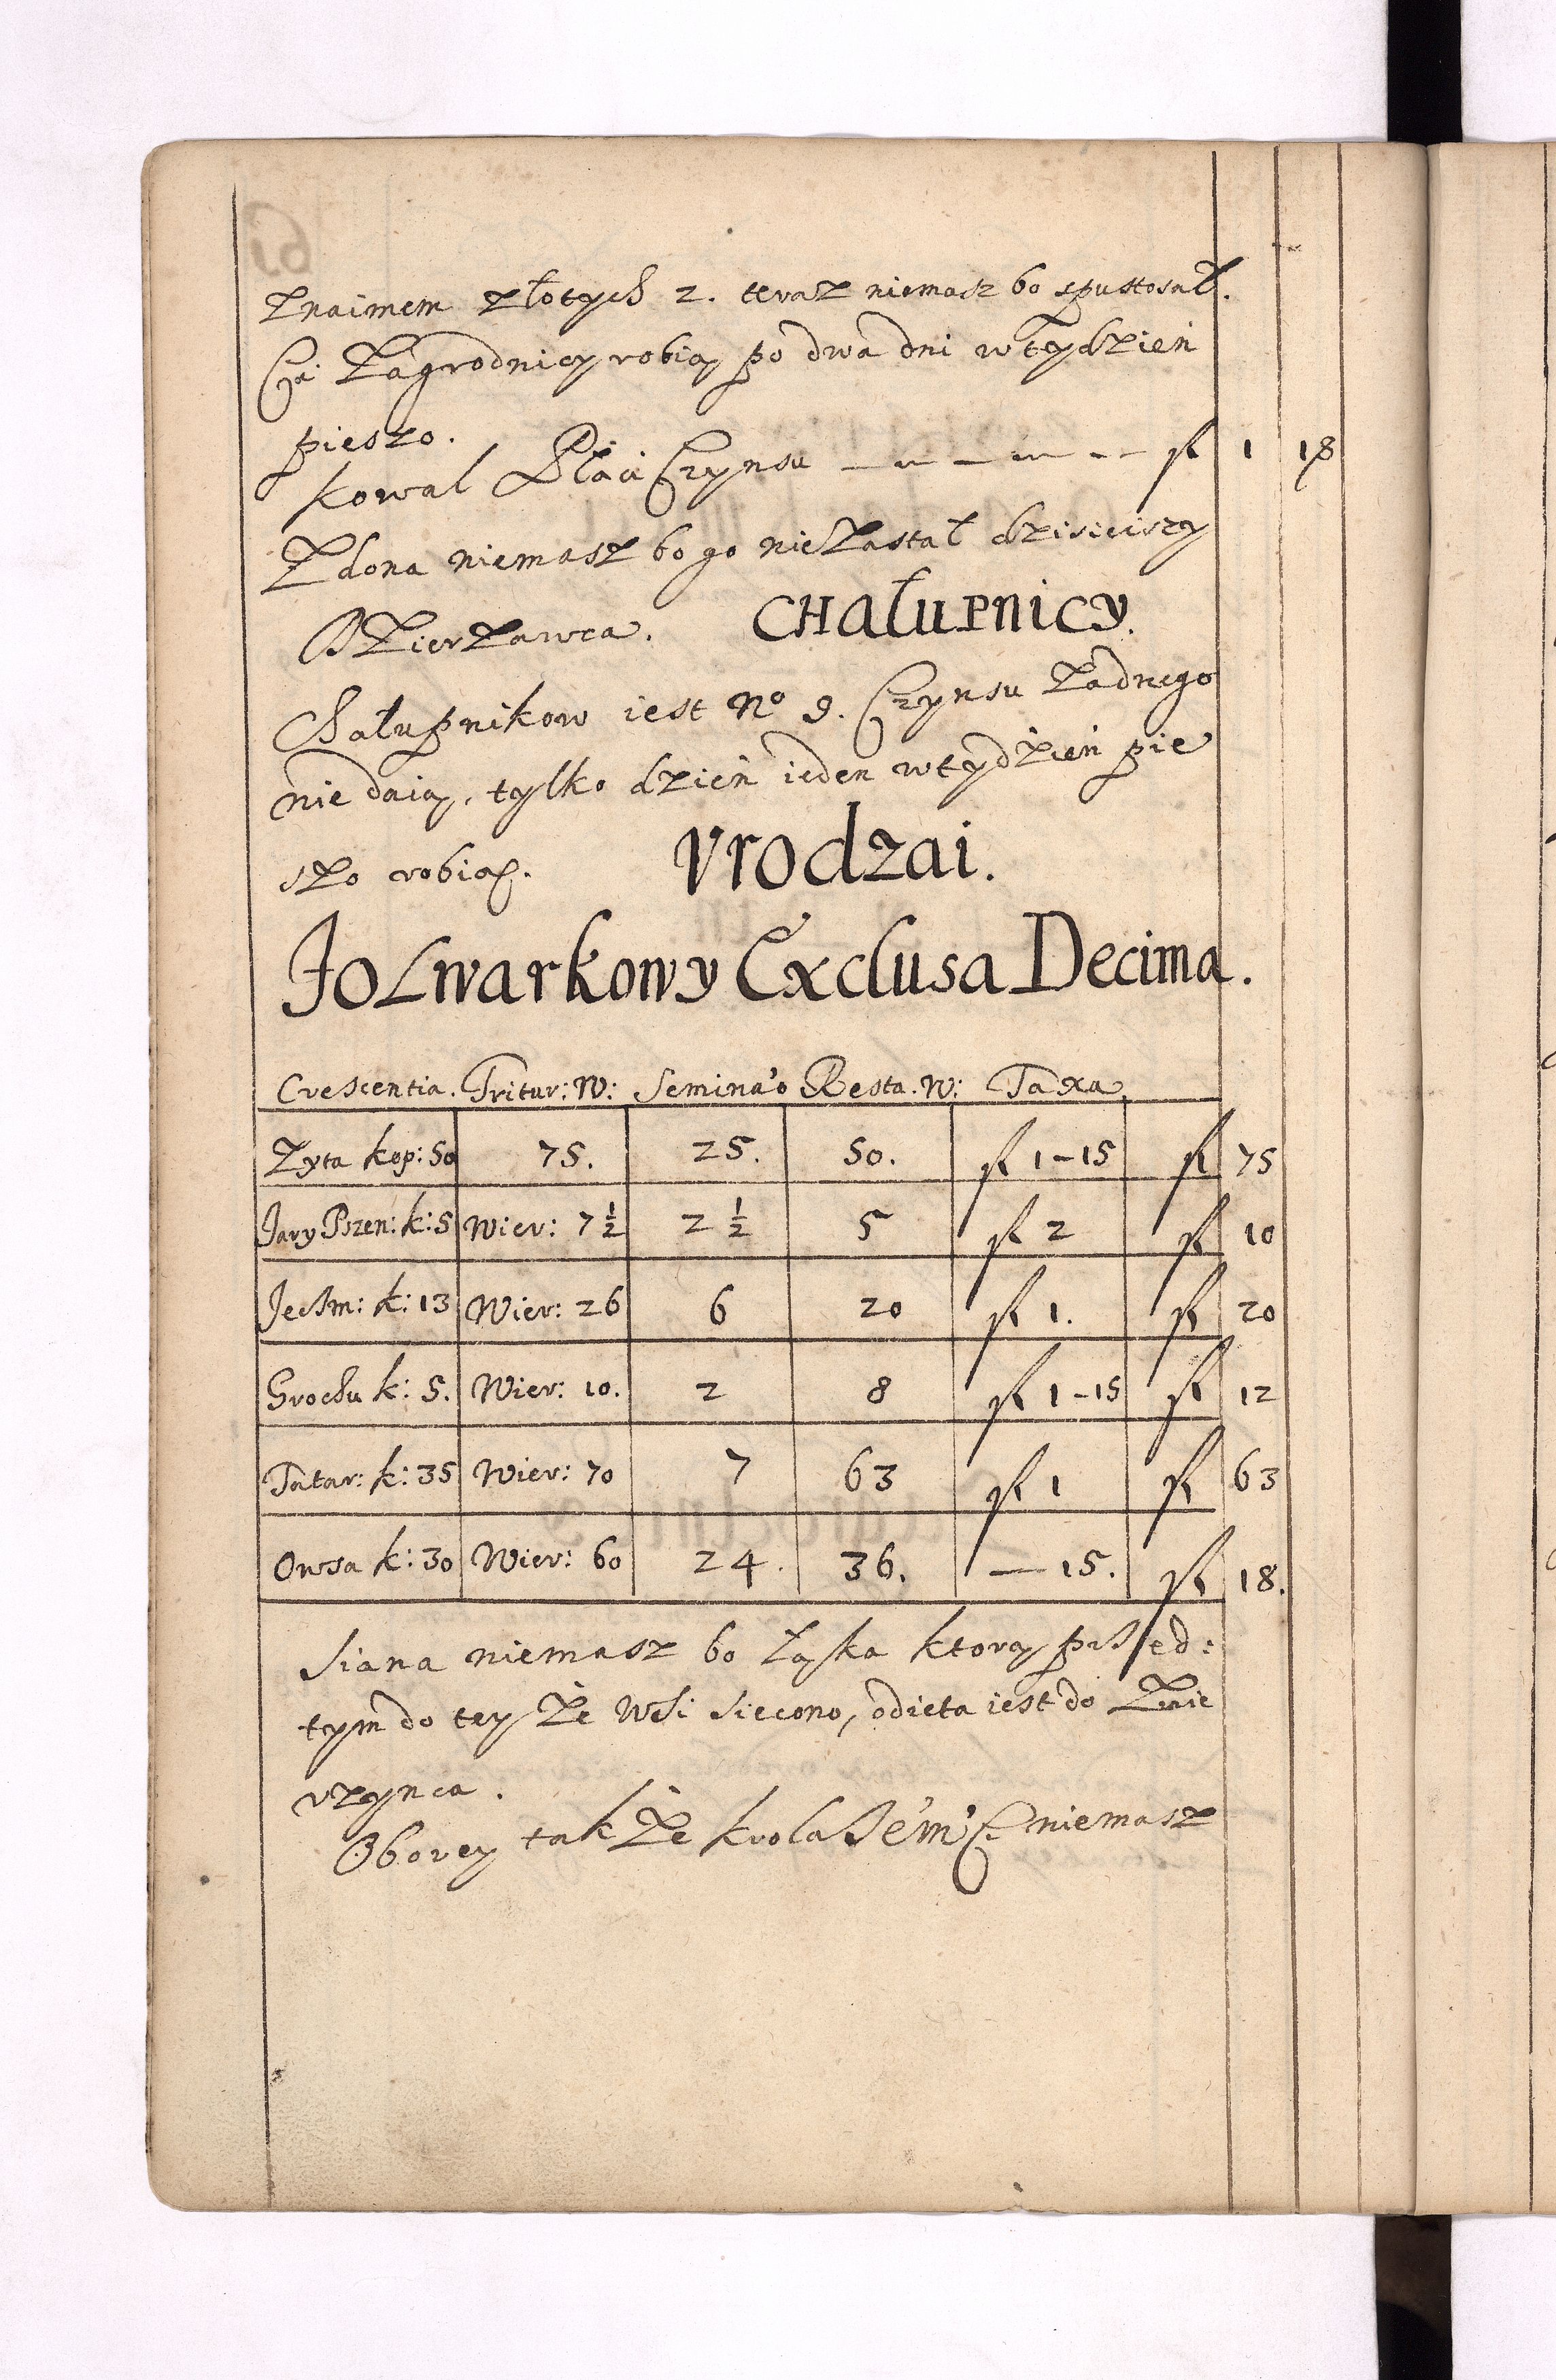 Znaimem złotych 2. teraz niemasz bo spustosał.
Ci Zagrodnicy robią po dwa dni w tydzień
pieszo.
Kowal Płaci Czynsu — — — — fl 1 18
Zdona niemasz bo go nie Zastał dzisieiszy
Dzierzawca. CHałupnicy.
Chałupnikow iest No 9. Czynsu Zadnego
nie daią, tylko dzień ieden w tydzień pie
szo robią. Vrodzai.
Folwarkowy Exclusa Decima.
Crescentia. Tritur: W: Semina'o Resta. W: Taxa
Zyta kop: 50 75. 25. 50. fl 1-15 fl 75
Jary Pszen: k: 5 Wier: 7½ 2½ 5 fl 2 fl 10
Jechm: k: 13 Wier: 26 6 20 fl 1. fl 20
Grochu k: 5. Wier: 10. 2 8 fl 1-15 fl 12
Tatar: k: 35 Wier: 70 7 63 fl 1 fl 63
Owsa k: 30 Wier: 60 24. 36. — 15. fl 18.
Siana niemasz bo Łąka ktorą przed:
tym do tey że Wsi Sieczono, odieta iest do Zwie
rzynca.
Obory także Krola niemasz